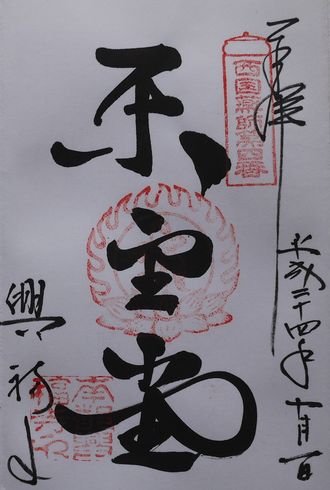 奉拝
西国薬師第四番
平成二十四年十月一日
東金堂
興福寺